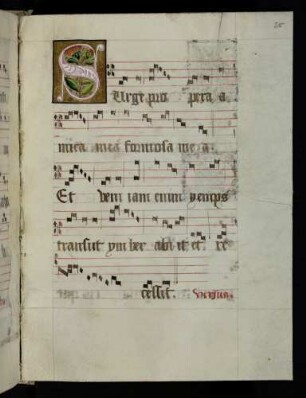 Surge pro pera a
mica mea formosa mea.
Et veni iam enim yemps
transiit ymber abiit et re
cessit.